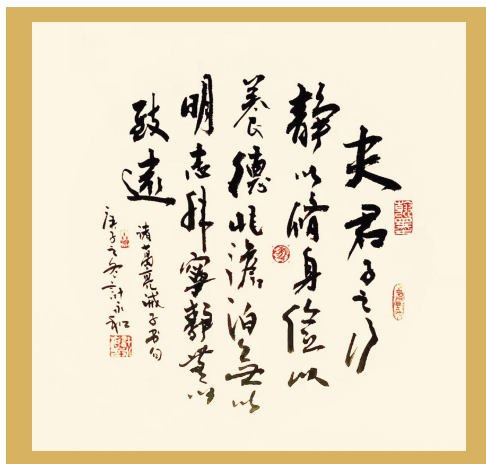 夫君子之行
静以脩身儉以
養德非澹泊無以
明志非寧靜無以
致遠
诸葛亮诫子书句
庚子之冬計永